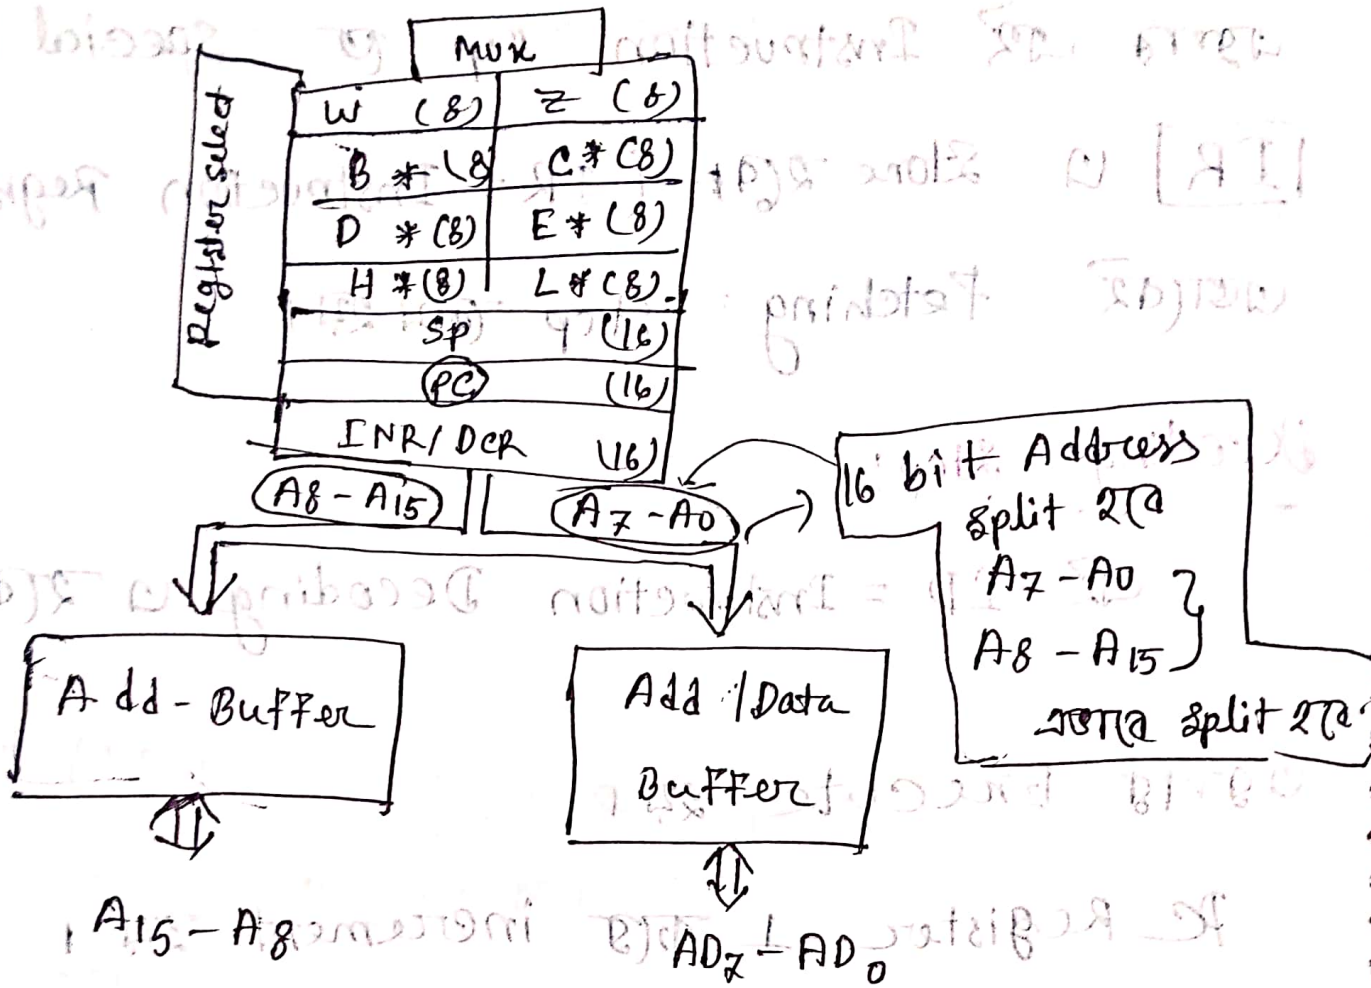 MUX
Register select
W (8) Z (8)
B * (8 C * (8)
D * (8) E * (8)
H * (8) L * (8)
SP (16)
PC (16)
INR/DCR (16)
A8 - A15 A7 - A0
16 bit Address
split হবে
A7 - A0
A8 - A15
split হবে
Add - Buffer
Add / Data
Buffer
A15 - A8
AD7 - AD0